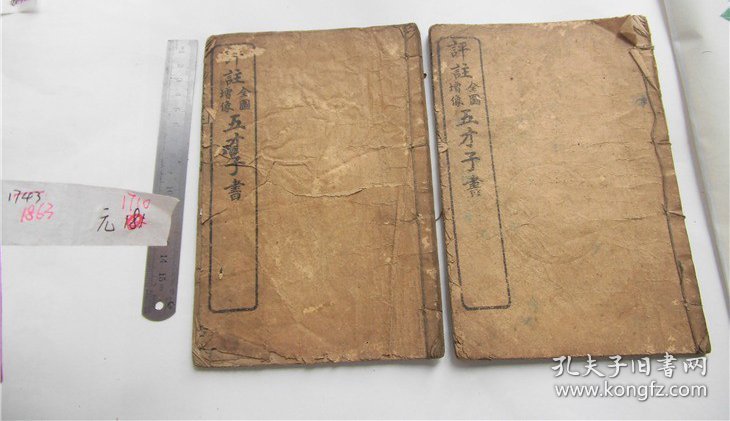 評註
全圖
增像
五才子書
評註
全圖
增像
五才子書
1743
1863
元
1710
14 15
孔夫子旧书网
www.kongfz.com